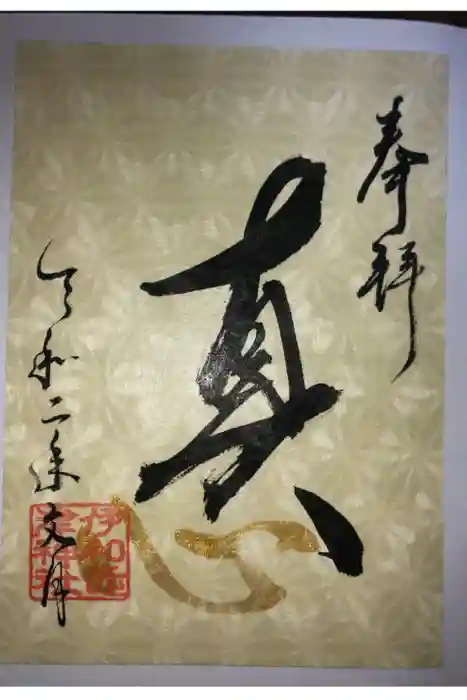 奉拝
真心
令和二年文月
伊和志
津神社